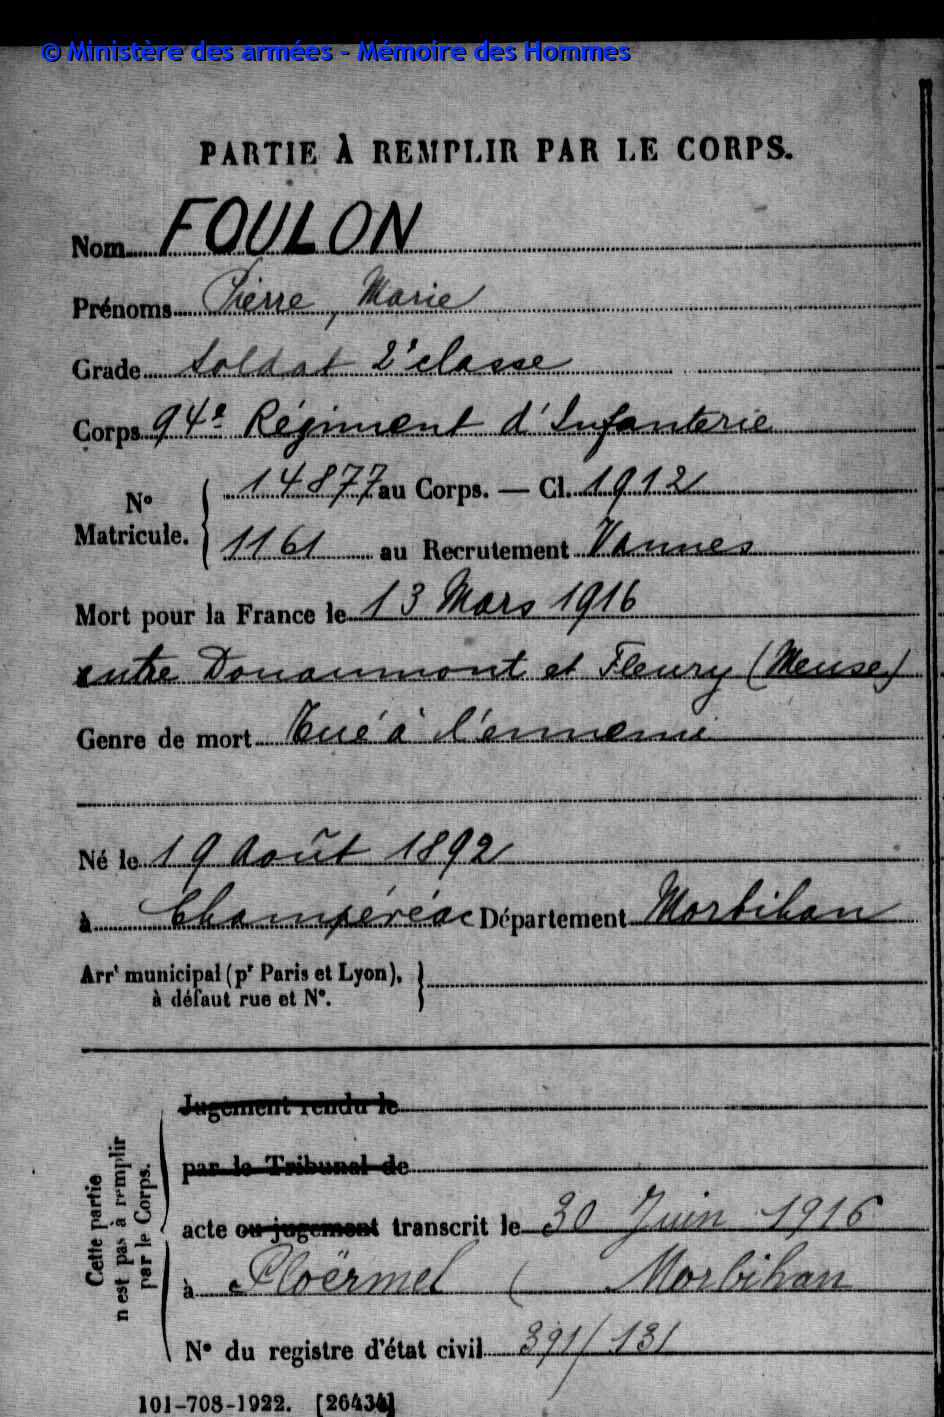 © Ministère des armées - Mémoire des Hommes
PARTIE À REMPLIR PAR LE CORPS.
Nom FOULON
Prénoms Pierre, Marie
Grade Soldat 2e classe
Corps 94e Régiment d'Infanterie
N° Matricule. { 14877 au Corps. — Cl. 1912
1161 au Recrutement Vannes
Mort pour la France le 13 Mars 1916
entre Douaumont et Fleury (Meuse)
Genre de mort Tué à l'ennemi
Né le 19 Août 1892
à Champéréac Département Morbihan
Arrt municipal (pr Paris et Lyon), }
à défaut rue et N°.
Cette partie n'est pas à remplir par le Corps.
Jugement rendu le
par le Tribunal de
acte ou jugement transcrit le 30 Juin 1916
à Ploërmel ( Morbihan
N° du registre d'état civil 391/131
101-708-1922. [26434]